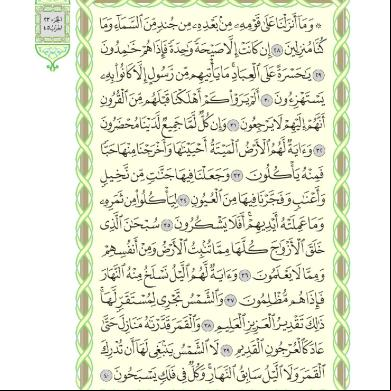 الجزء ٢٣
الحزب ٤٥
۞ وَمَا أَنزَلْنَا عَلَىٰ قَوْمِهِۦ مِنۢ بَعْدِهِۦ مِن جُندٍ مِّنَ ٱلسَّمَآءِ وَمَا
كُنَّا مُنزِلِينَ ٢٨ إِن كَانَتْ إِلَّا صَيْحَةً وَٰحِدَةً فَإِذَا هُمْ خَٰمِدُونَ
٢٩ يَٰحَسْرَةً عَلَى ٱلْعِبَادِ ۚ مَا يَأْتِيهِم مِّن رَّسُولٍ إِلَّا كَانُوا۟ بِهِۦ
يَسْتَهْزِءُونَ ٣٠ أَلَمْ يَرَوْا۟ كَمْ أَهْلَكْنَا قَبْلَهُم مِّنَ ٱلْقُرُونِ
أَنَّهُمْ إِلَيْهِمْ لَا يَرْجِعُونَ ٣١ وَإِن كُلٌّ لَّمَّا جَمِيعٌ لَّدَيْنَا مُحْضَرُونَ
٣٢ وَءَايَةٌ لَّهُمُ ٱلْأَرْضُ ٱلْمَيْتَةُ أَحْيَيْنَٰهَا وَأَخْرَجْنَا مِنْهَا حَبًّا
فَمِنْهُ يَأْكُلُونَ ٣٣ وَجَعَلْنَا فِيهَا جَنَّٰتٍ مِّن نَّخِيلٍ
وَأَعْنَٰبٍ وَفَجَّرْنَا فِيهَا مِنَ ٱلْعُيُونِ ٣٤ لِيَأْكُلُوا۟ مِن ثَمَرِهِۦ
وَمَا عَمِلَتْهُ أَيْدِيهِمْ ۖ أَفَلَا يَشْكُرُونَ ٣٥ سُبْحَٰنَ ٱلَّذِى
خَلَقَ ٱلْأَزْوَٰجَ كُلَّهَا مِمَّا تُنۢبِتُ ٱلْأَرْضُ وَمِنْ أَنفُسِهِمْ
وَمِمَّا لَا يَعْلَمُونَ ٣٦ وَءَايَةٌ لَّهُمُ ٱلَّيْلُ نَسْلَخُ مِنْهُ ٱلنَّهَارَ
فَإِذَا هُم مُّظْلِمُونَ ٣٧ وَٱلشَّمْسُ تَجْرِى لِمُسْتَقَرٍّ لَّهَا ۚ
ذَٰلِكَ تَقْدِيرُ ٱلْعَزِيزِ ٱلْعَلِيمِ ٣٨ وَٱلْقَمَرَ قَدَّرْنَٰهُ مَنَازِلَ حَتَّىٰ
عَادَ كَٱلْعُرْجُونِ ٱلْقَدِيمِ ٣٩ لَا ٱلشَّمْسُ يَنۢبَغِى لَهَآ أَن تُدْرِكَ
ٱلْقَمَرَ وَلَا ٱلَّيْلُ سَابِقُ ٱلنَّهَارِ ۚ وَكُلٌّ فِى فَلَكٍ يَسْبَحُونَ ٤٠